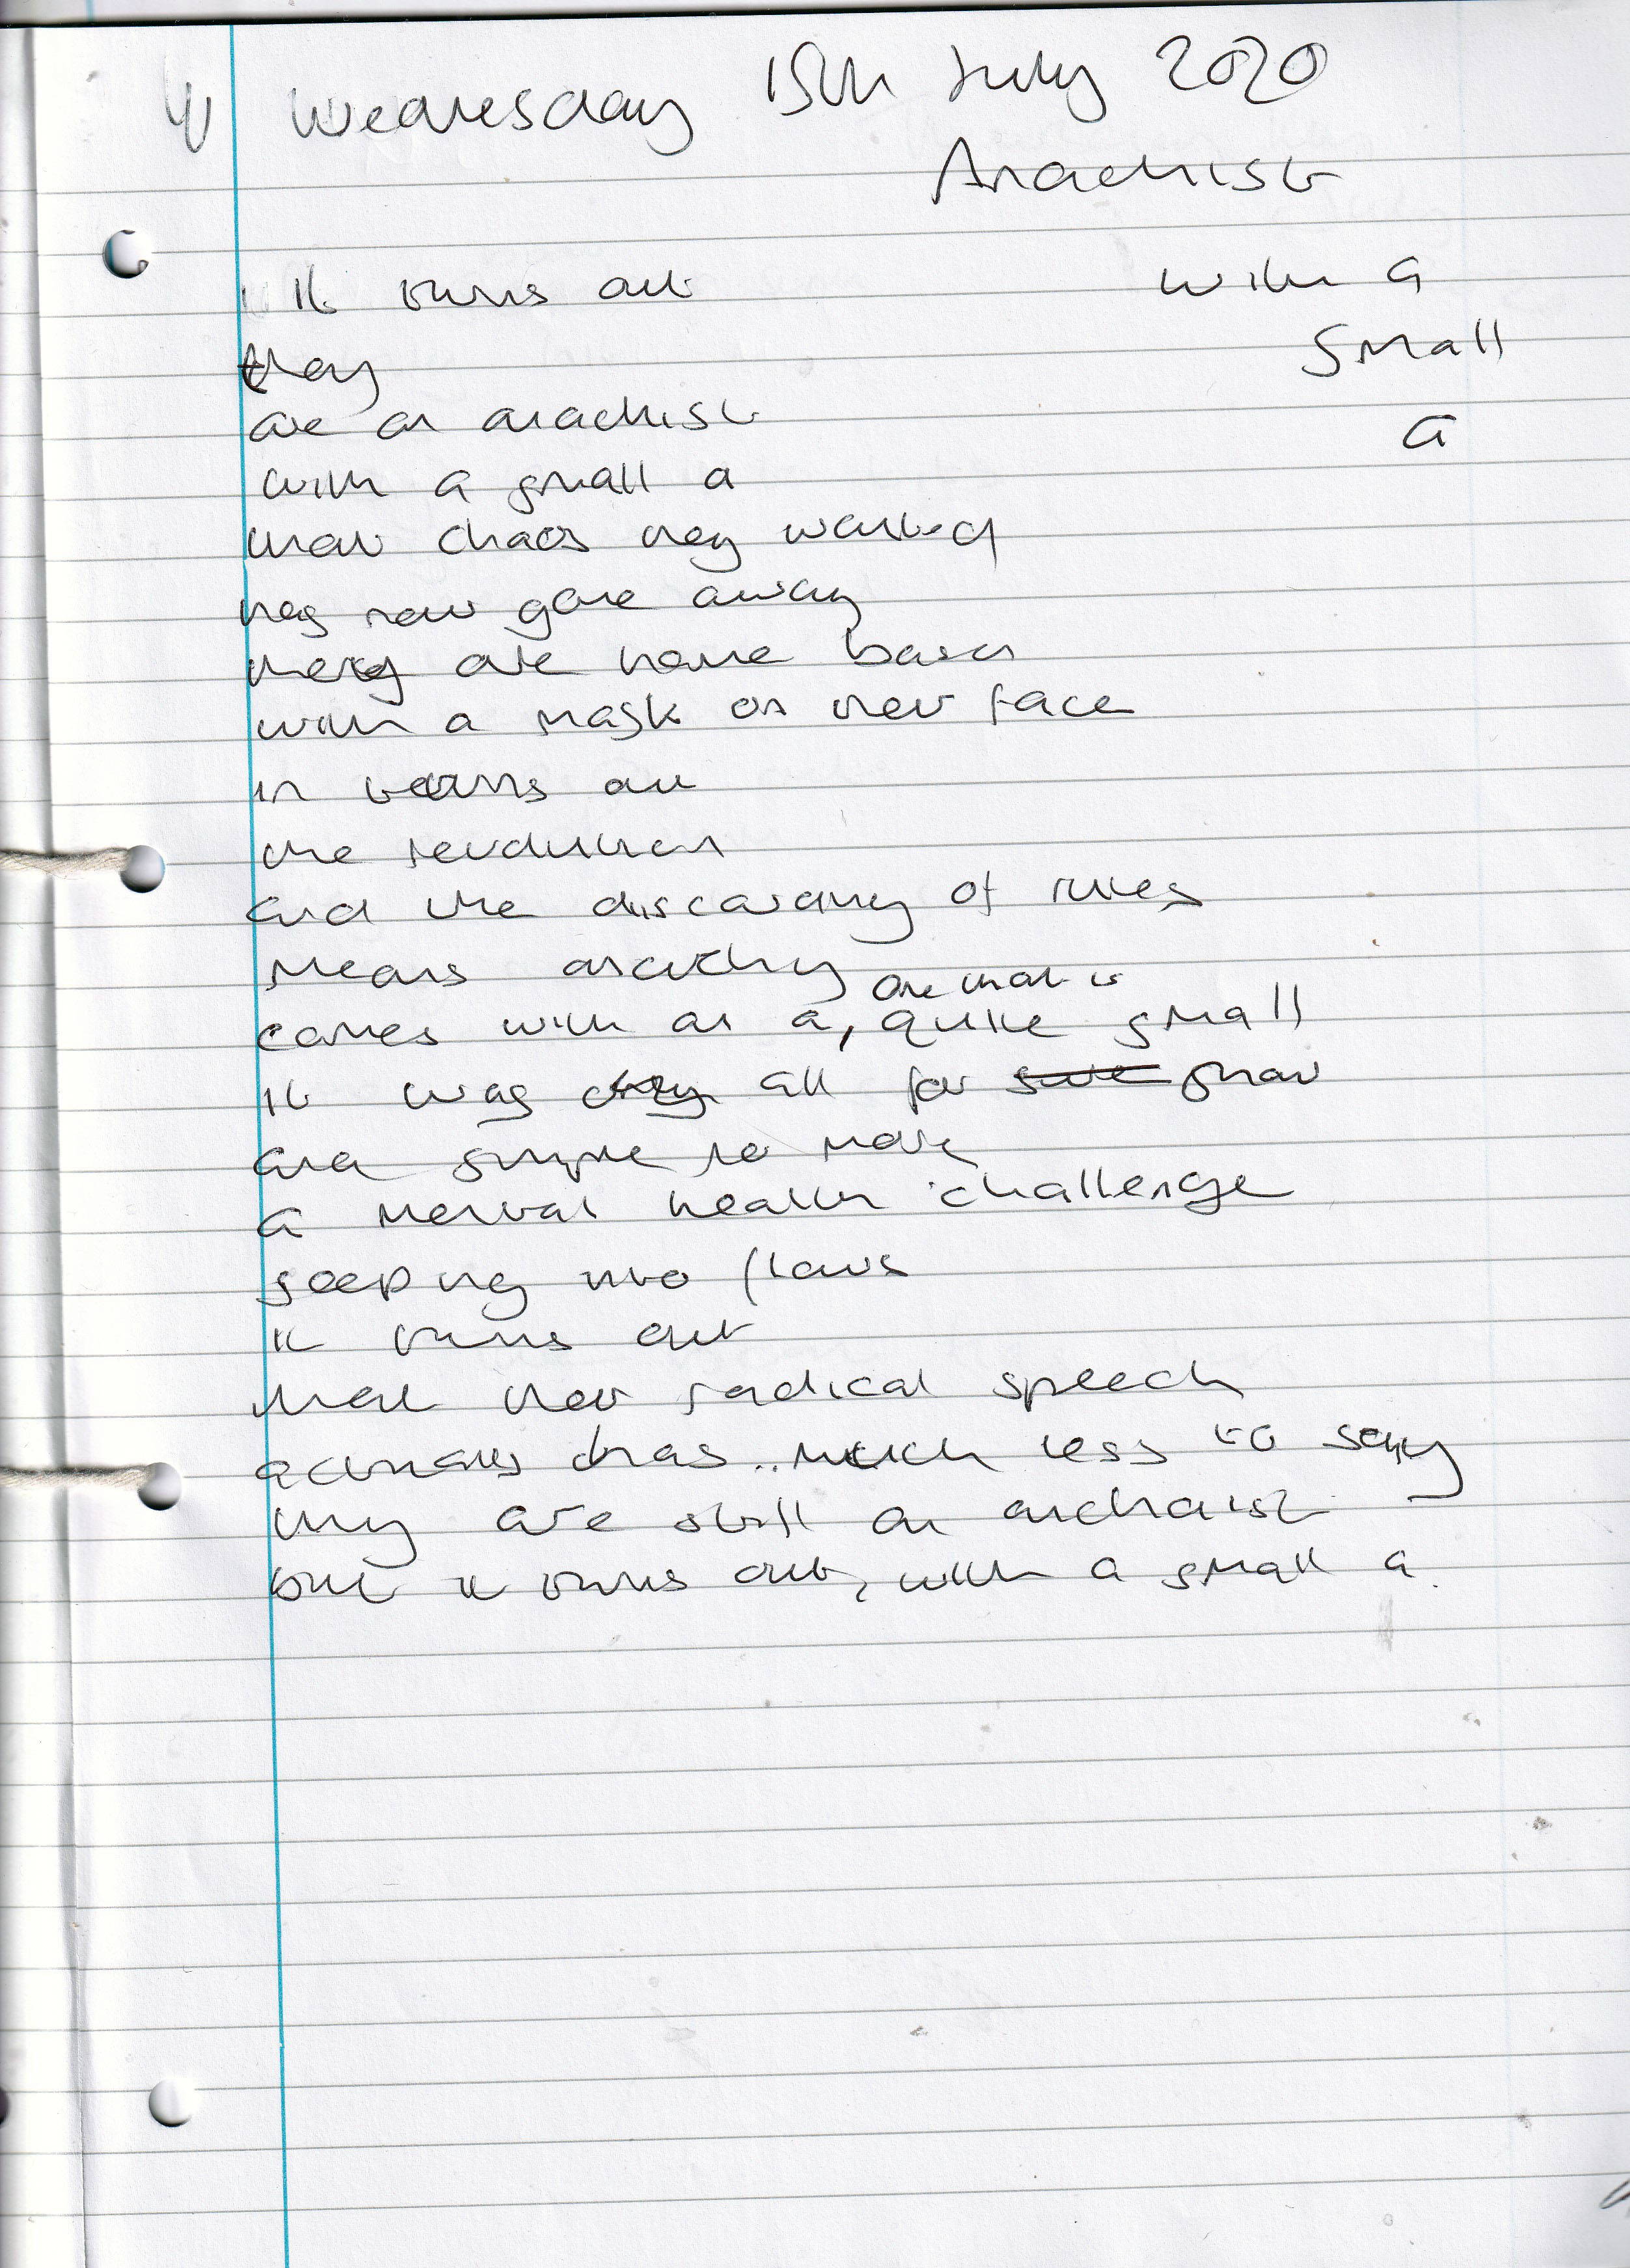 Wednesday 15th July 2020
Anachist
with a
small
a
it turns out
they
are an anachist
with a small a
their chaos they wanted
has now gone away
they are home
with a mask on their face
it turns out
the revolution
and the discarding of rules
means
one that is
comes with an a, quite small
it was all for show
and
a mental health challenge
seeping into flaws
it turns out
that their radical speech
actually has much less to say
they are still an
but it turns out, with a small a.